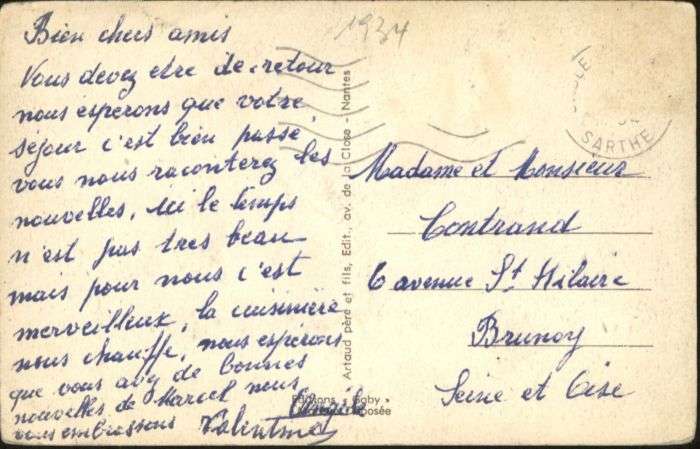 1934
Bien chers amis
Vous devez etre de retour
nous esperons que votre
séjour c'est bien passé,
vous nous raconterez les
nouvelles, ici le temps
n'est pas tres beau
mais pour nous c'est
merveilleux, la cuisinière
nous chauffe, nous espérons
que vous avez de bonnes
nouvelles de Marcel nous
vous embrassons Valentine
Artaud père et fils, Edit., av. de la Close - Nantes
Editions Gaby
SARTHE
Madame et Monsieur
Contrand
6 avenue St Hilaire
Brunoy
Seine et Oise